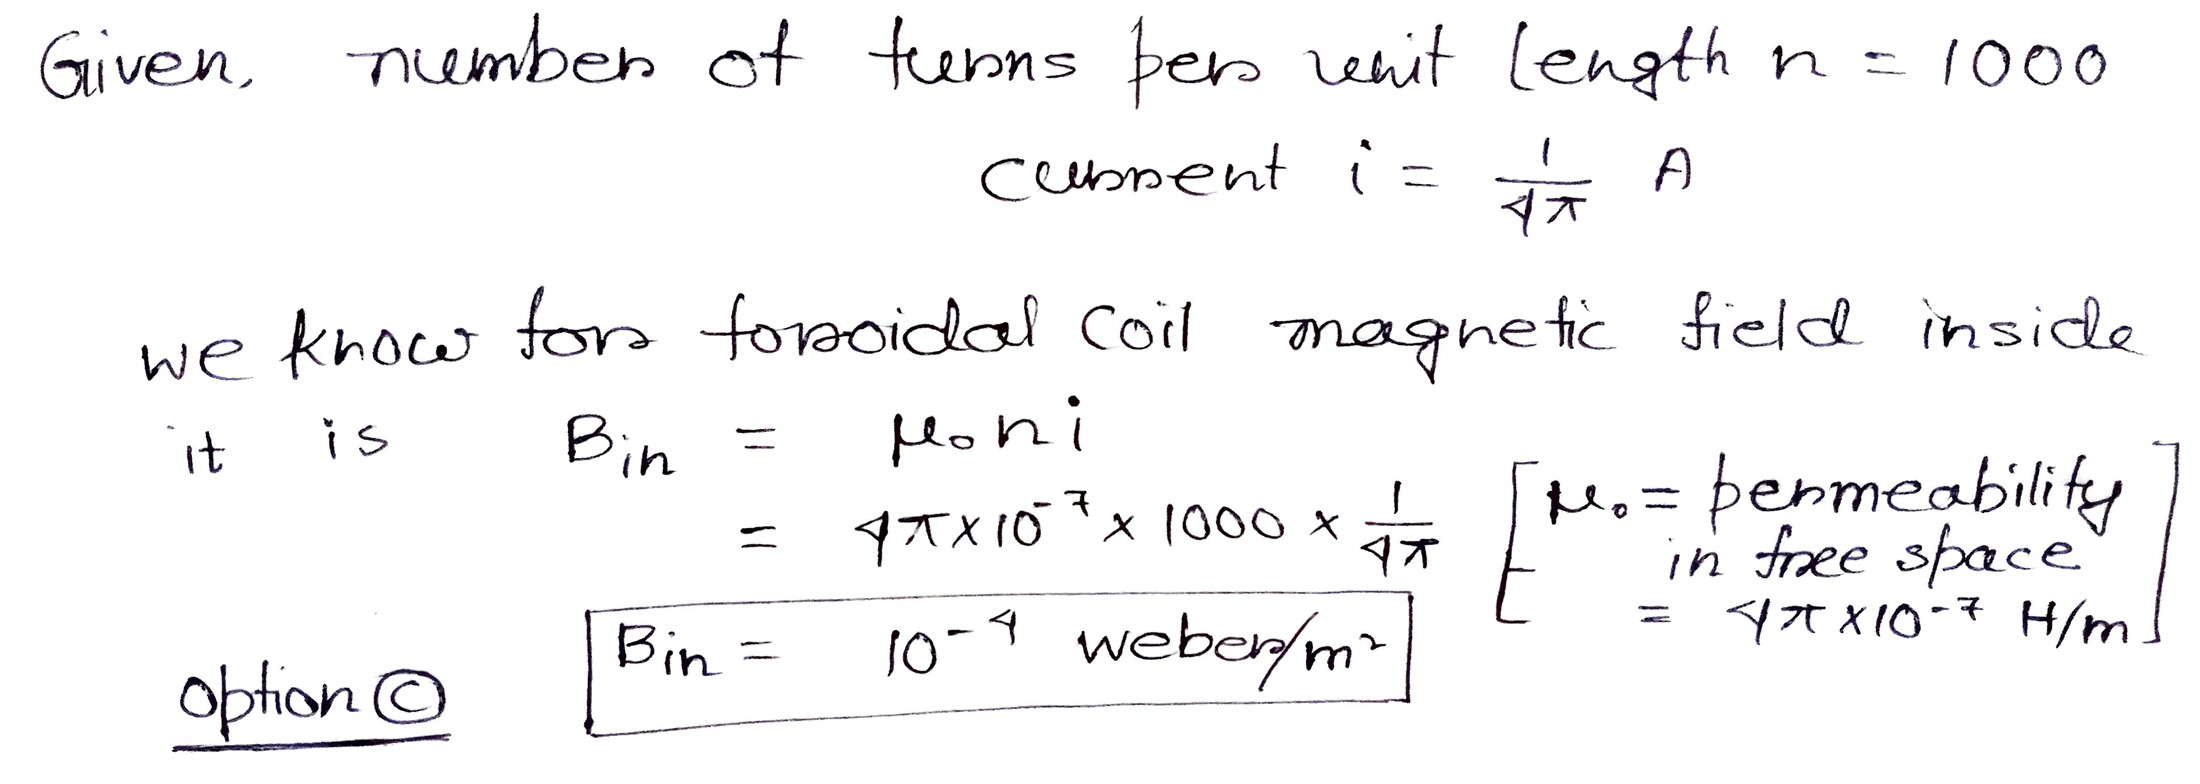 Given, number of turns per unit length n = 1000
current i = 1/4π A
we know for toroidal coil magnetic field inside
it is Bin = μ₀ n i
= 4π×10⁻⁷ × 1000 × 1/4π
[μ₀ = permeability
in free space
= 4π×10⁻⁷ H/m]
Bin = 10⁻⁴ weber/m²
option ©